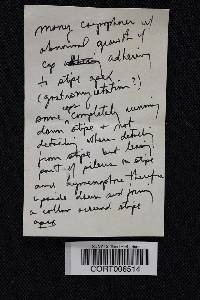 many carpophores w/
abnormal growth of
cap adhering
to stipe apex
(gastromycetation?)
some caps completely running
down stipe & not
detaching. Others detaching
from stipe but leaving
part of pileus on stipe
and hymenophore therefore
upside down and forming
a collar around stipe
apex
CORT006514